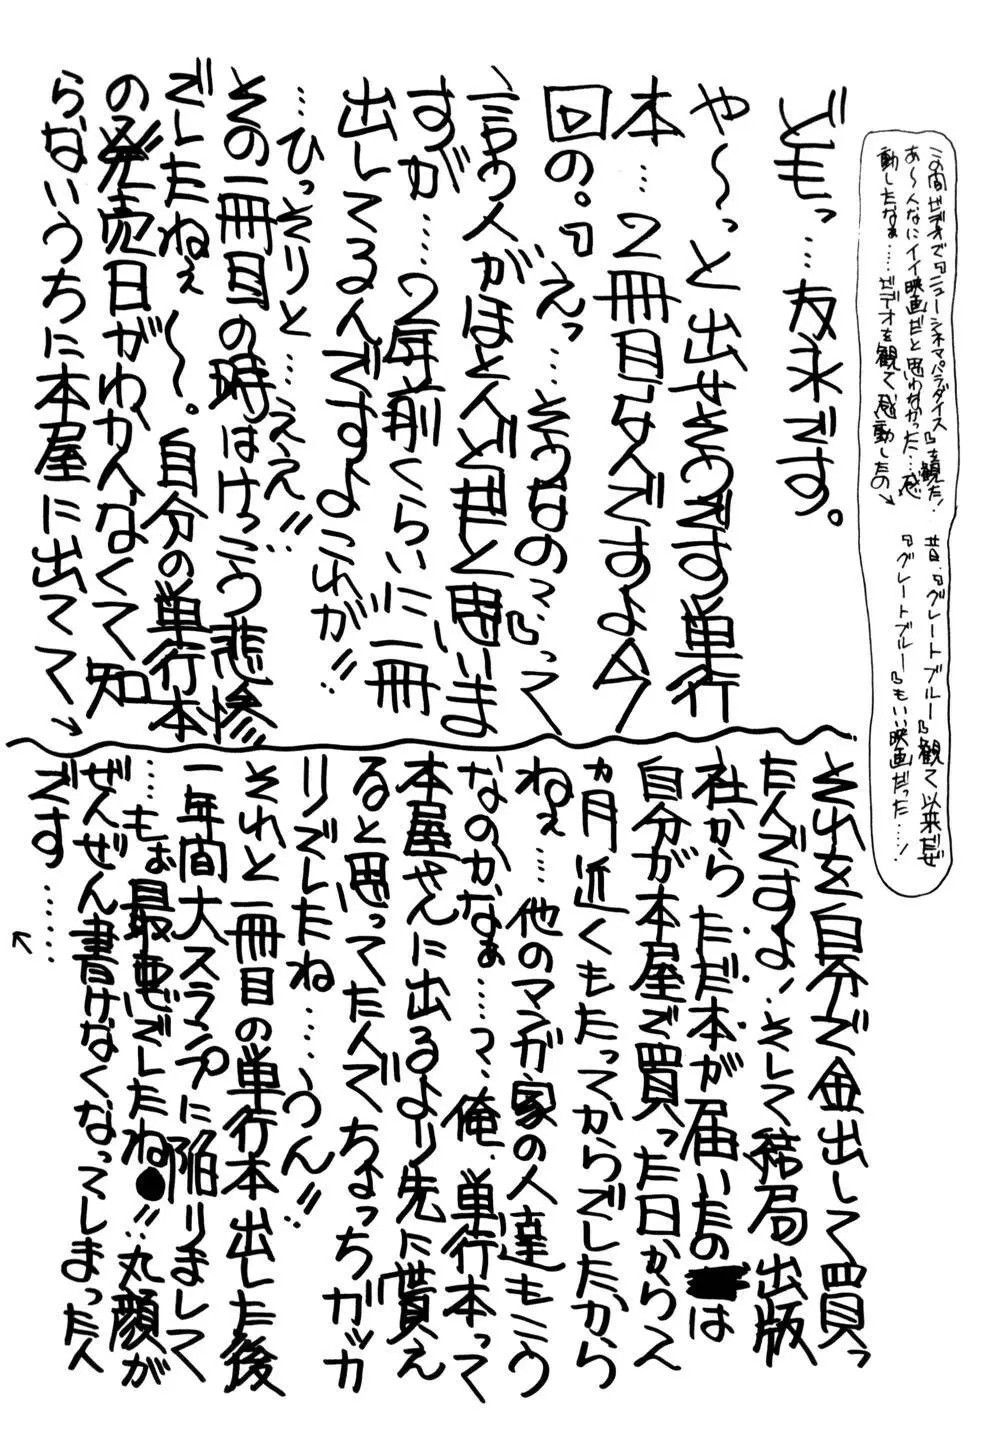 どもっ…友永です。
や〜っと出せそうです単行
本…2冊目なんですよ今
回の。『えっ……そうなの？』って
言う人がほとんどだと思いま
すが……2年前くらいに一冊
出してるんですよこれが!!
…ひっそりと……ええ!!
その一冊目の時はけっこう悲惨
でしたねぇ〜。自分の単行本
の発売日がわかんなくて知
らないうちに本屋に出てて→
それを自分で金出して買っ
たんですよ、そして結局出版
社からただ本が届いたのは
自分が本屋で買った日から一
ヵ月近くもたってからでしたから
ねぇ……他のマンガ家の人達もこう
なのかなぁ……？、俺、単行本って
本屋さんに出るより先に貰え
ると思ってたんでちょっちガッカ
リでしたね……うん!!
それと一冊目の単行本出した後
一年間大スランプに陥りまして
……もぉ最悪でしたね!!丸顔が
ぜんぜん書けなくなってしまったん
です……
↑
この間ビデオで『ニューシネマパラダイス』を観た!
あ〜んなにイイ映画だと思わなかった…感
動したなぁ……ビデオを観て感動したの→
昔、『グレートブルー』観て以来だぜ
『グレートブルー』もいい映画だった……!